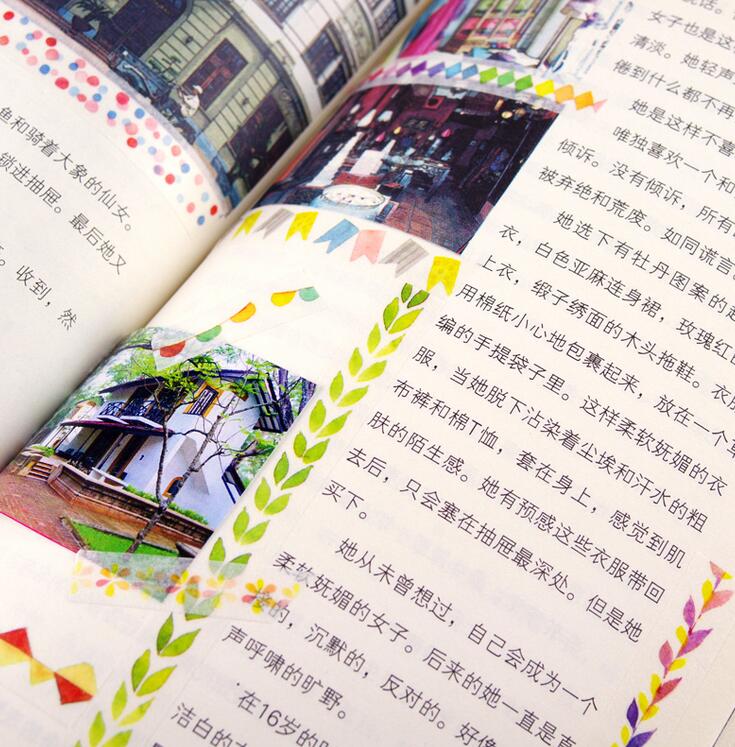 色和骑着大象的仙女。
锁进抽屉。最后她又
收到,然
说话。
女子也是这样
清淡。她轻声
倦到什么都不再
她是这样不喜
唯独喜欢一个和
倾诉。没有倾诉,所有
被弃绝和荒废。如同谎言
她选下有牡丹图案的
衣,白色亚麻连身裙,玫瑰红的
上衣,缎子绣面的木头拖鞋。衣服
用棉纸小心地包裹起来,放在一个草
编的手提袋子里。这样柔软妩媚的衣
服,当她脱下沾染着尘埃和汗水的粗
布裤和棉T恤,套在身上,感觉到肌
肤的陌生感。她有预感这些衣服带回
去后,只会塞在抽屉最深处。但是她
买下。
她从未曾想过,自己会成为一个
柔软妩媚的女子。后来的她一直是
的,沉默的,反对的。好像
声呼啸的旷野。
·在16岁的
洁白的